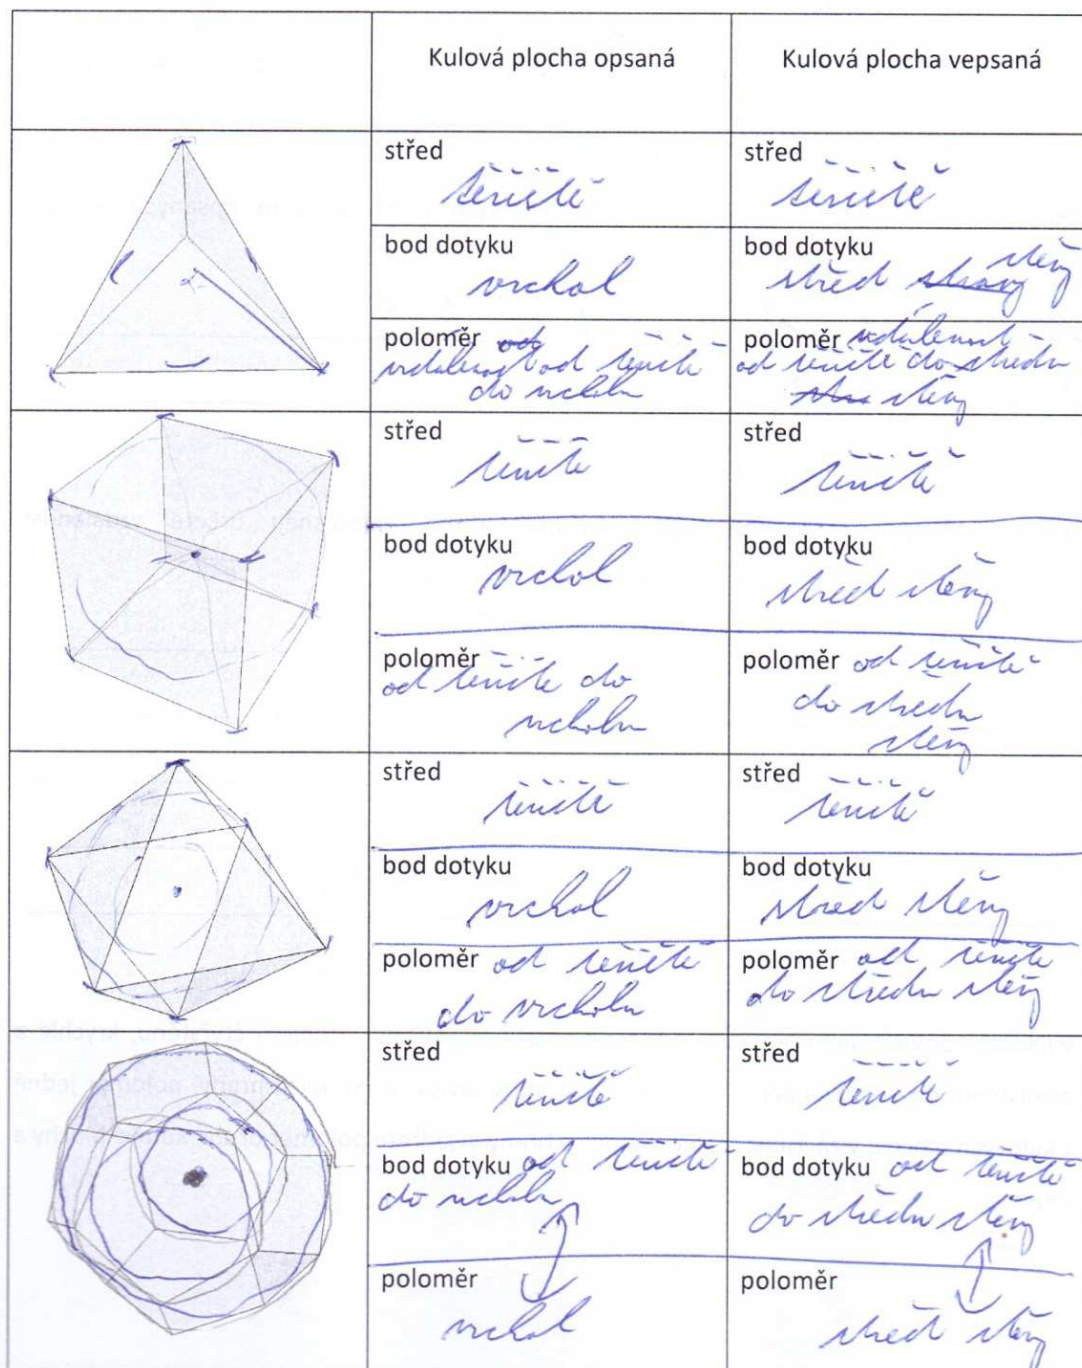 Kulová plocha opsaná
Kulová plocha vepsaná
střed
těžiště
střed
těžiště
bod dotyku
vrchol
bod dotyku
střed strany stěny
poloměr od
vzdálenost od těžiště
do vrcholu
poloměr vzdálenost
od těžiště do středu
stěny
střed
těžiště
střed
těžiště
bod dotyku
vrchol
bod dotyku
střed stěny
poloměr
od těžiště do
vrcholu
poloměr od těžiště
do středu
stěny
střed
těžiště
střed
těžiště
bod dotyku
vrchol
bod dotyku
střed stěny
poloměr od těžiště
do vrcholu
poloměr od těžiště
do středu stěny
střed
těžiště
střed
těžiště
bod dotyku od těžiště
do vrcholu
bod dotyku od těžiště
do středu stěny
poloměr
vrchol
poloměr
střed stěny